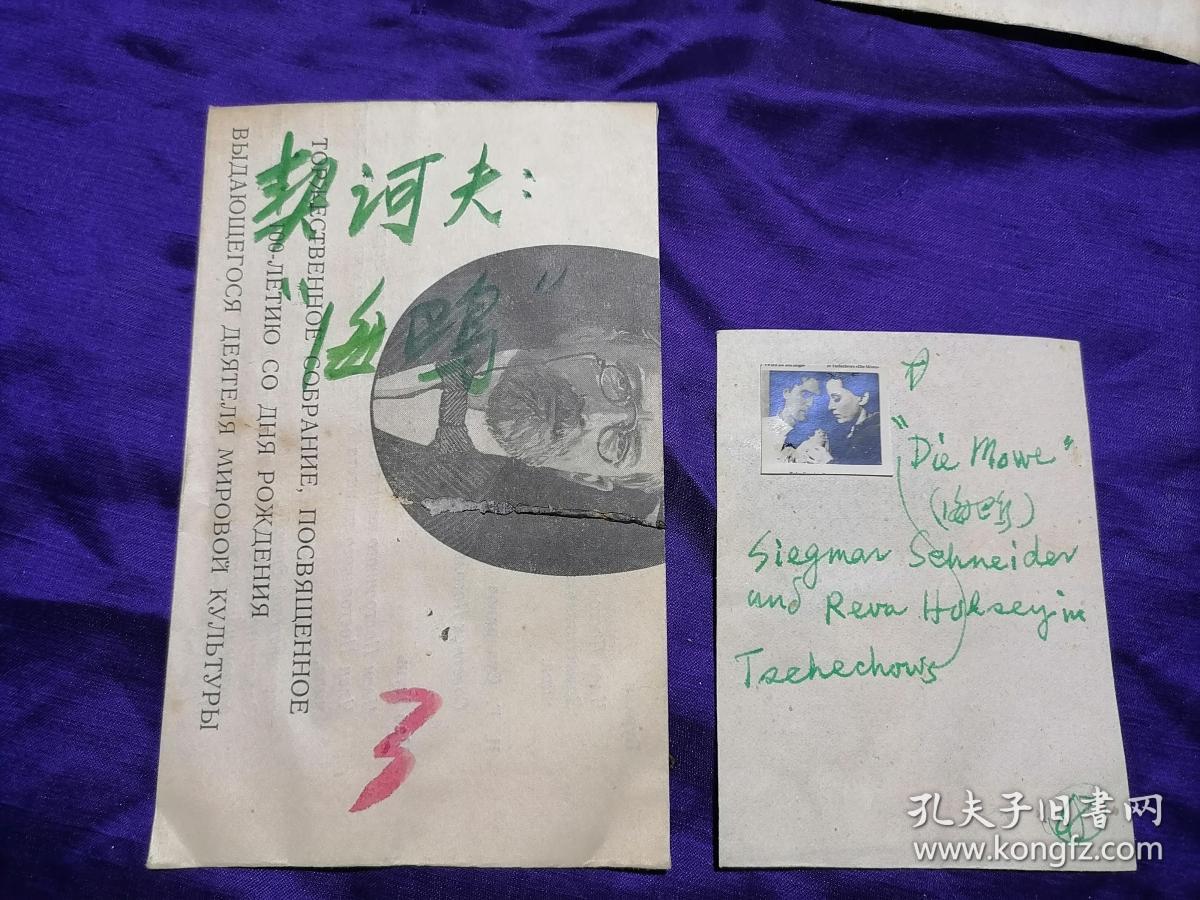 契诃夫:
"海鸥"
ТОРЖЕСТВЕННОЕ СОБРАНИЕ, ПОСВЯЩЕННОЕ
100-ЛЕТИЮ СО ДНЯ РОЖДЕНИЯ
ВЫДАЮЩЕГОСЯ ДЕЯТЕЛЯ МИРОВОЙ КУЛЬТУРЫ
3
"Die Mowe"
(海鸥)
Siegmar Schneider
und Reva Holsey in
Tschechows
孔夫子旧书网
www.kongfz.com